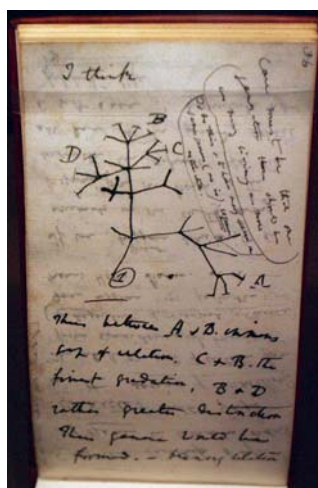 36
I think
Case must be that one
generation then should be
as many living as now
To do this & to have many species in
same genus (as is) requires
extinction
B
D
C
A
1
Thus between A & B. immense
gap of relation. C & B. the
finest gradation, B & D
rather greater distinction
Thus genera would be
formed. — bearing relation